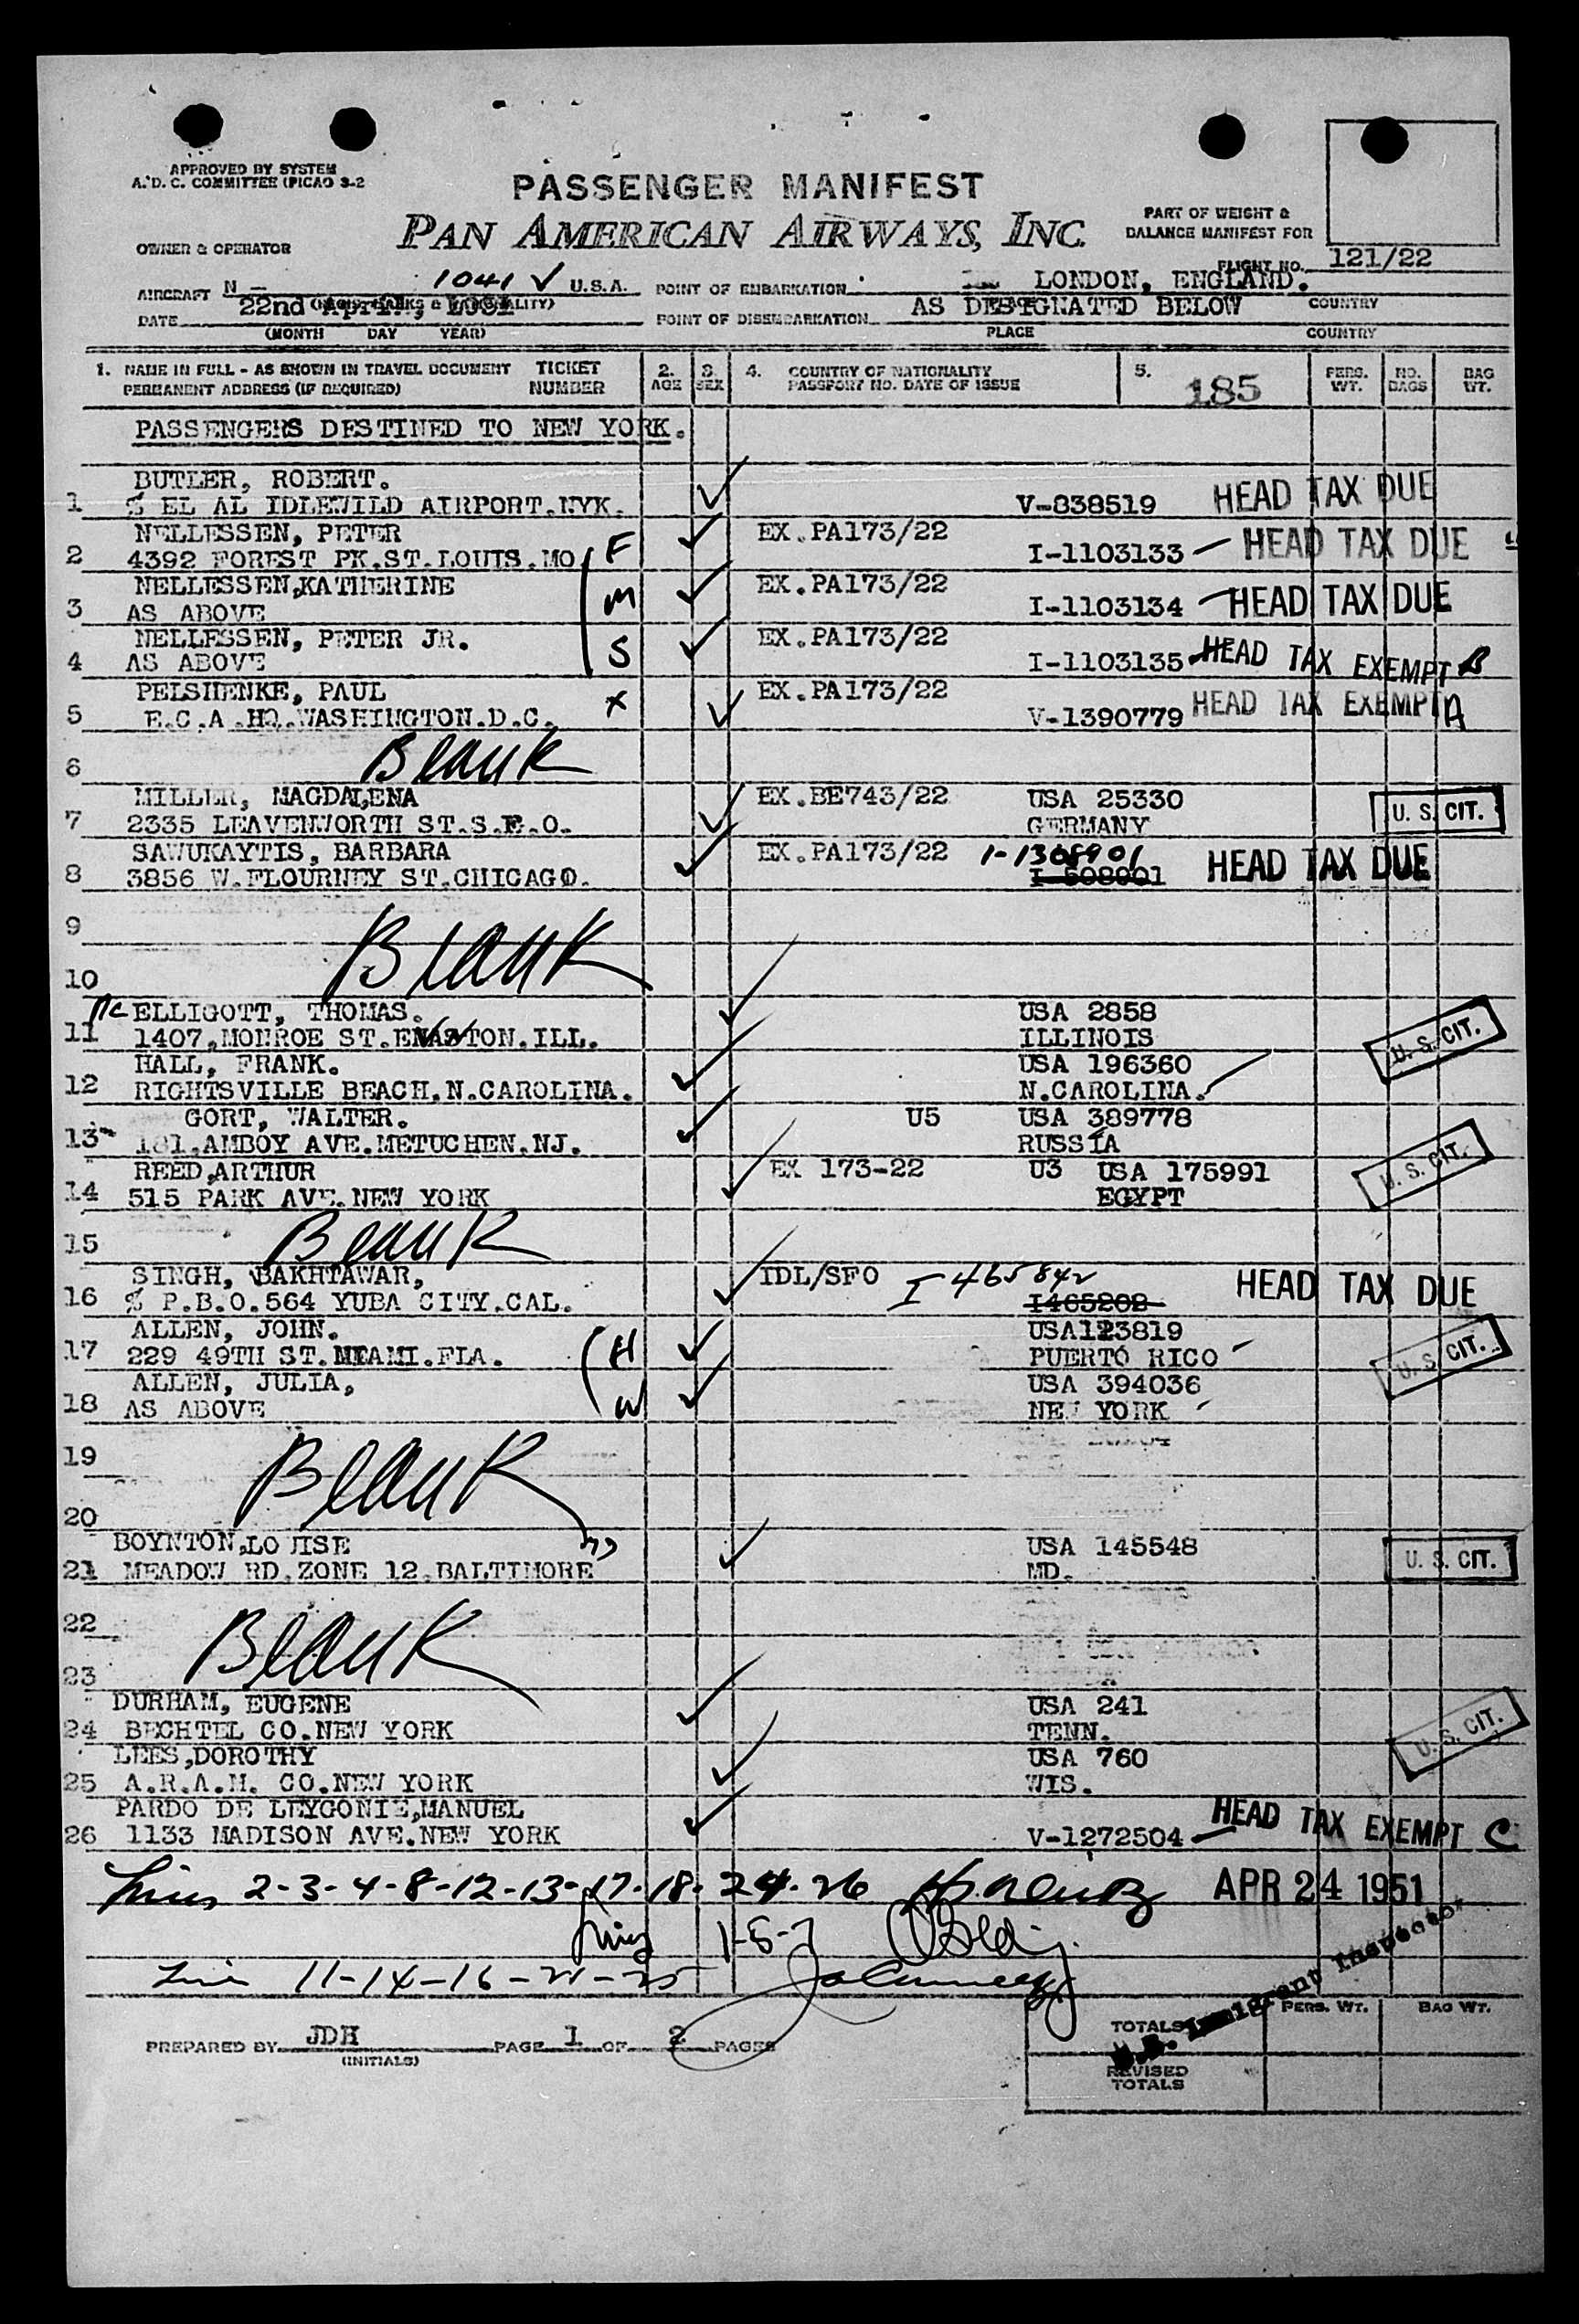 APPROVED BY SYSTEM
A. D. C. COMMITTEE (PICAO 3-2
PASSENGER MANIFEST
PAN AMERICAN AIRWAYS, INC.
PART OF WEIGHT &
BALANCE MANIFEST FOR
OWNER & OPERATOR
FLIGHT NO. 121/22
AIRCRAFT N - 1041 U.S.A. POINT OF EMBARKATION LONDON, ENGLAND.
DATE 22nd April, 1951 POINT OF DISEMBARKATION AS DESIGNATED BELOW COUNTRY
(MONTH DAY YEAR) PLACE COUNTRY
1. NAME IN FULL - AS SHOWN IN TRAVEL DOCUMENT TICKET 2. 3. 4. COUNTRY OF NATIONALITY 5. 185 PERS. NO. BAG
PERMANENT ADDRESS (IF REQUIRED) NUMBER AGE SEX PASSPORT NO. DATE OF ISSUE WT. BAGS WT.
PASSENGERS DESTINED TO NEW YORK.
BUTLER, ROBERT.
1 % EL AL IDLEWILD AIRPORT.NYK. V-838519 HEAD TAX DUE
NELLESSEN, PETER EX.PA173/22
2 4392 FOREST PK.ST.LOUIS.MO F I-1103133 HEAD TAX DUE
NELLESSEN,KATHERINE EX.PA173/22
3 AS ABOVE M I-1103134 HEAD TAX DUE
NELLESSEN, PETER JR. EX.PA173/22
4 AS ABOVE S I-1103135 HEAD TAX EXEMPT B
PELSHENKE, PAUL X EX.PA173/22
5 E.C.A.HQ.WASHINGTON.D.C. V-1390779 HEAD TAX EXEMPT A
6 Blank
MILLER, MAGDALENA EX.BE743/22 USA 25330
7 2335 LEAVENWORTH ST.S.F.O. GERMANY U. S. CIT.
SAWUKAYTIS, BARBARA EX.PA173/22 1-1308901
8 3856 W.FLOURNEY ST.CHICAGO. I-608001 HEAD TAX DUE
9
10 Blank
Mc ELLIGOTT, THOMAS. USA 2858
11 1407,MONROE ST.ENASTON.ILL. ILLINOIS U. S. CIT.
HALL, FRANK. USA 196360
12 RIGHTSVILLE BEACH.N.CAROLINA. N.CAROLINA.
GORT, WALTER. U5 USA 389778
13 181,AMBOY AVE.METUCHEN.NJ. RUSSIA
REED,ARTHUR EX 173-22 U3 USA 175991 U. S. CIT.
14 515 PARK AVE.NEW YORK EGYPT
15 Blank
SINGH, BAKHTAWAR, IDL/SFO I 465842
16 % P.B.O.564 YUBA CITY.CAL. I465202 HEAD TAX DUE
ALLEN, JOHN. USA123819
17 229 49TH ST.MIAMI.FLA. H PUERTO RICO U. S. CIT.
ALLEN, JULIA, USA 394036
18 AS ABOVE W NEW YORK
19
20 Blank
BOYNTON,LOUISE USA 145548
21 MEADOW RD.ZONE 12.BALTIMORE MD. U. S. CIT.
22
23 Blank
DURHAM, EUGENE USA 241
24 BECHTEL CO.NEW YORK TENN. U. S. CIT.
LEES,DOROTHY USA 760
25 A.R.A.M. CO.NEW YORK WIS.
PARDO DE LEYGONIE,MANUEL
26 1133 MADISON AVE.NEW YORK V-1272504 HEAD TAX EXEMPT C
Lines 2-3-4-8-12-13-17-18-24-26 APR 24 1951
Lines 1-5-7
Line 11-14-16-21-25
U.S. Immigrant Inspector
PREPARED BY JDH PAGE 1 OF 2 PAGES
(INITIALS)
PERS. WT. BAG WT.
TOTALS
REVISED
TOTALS